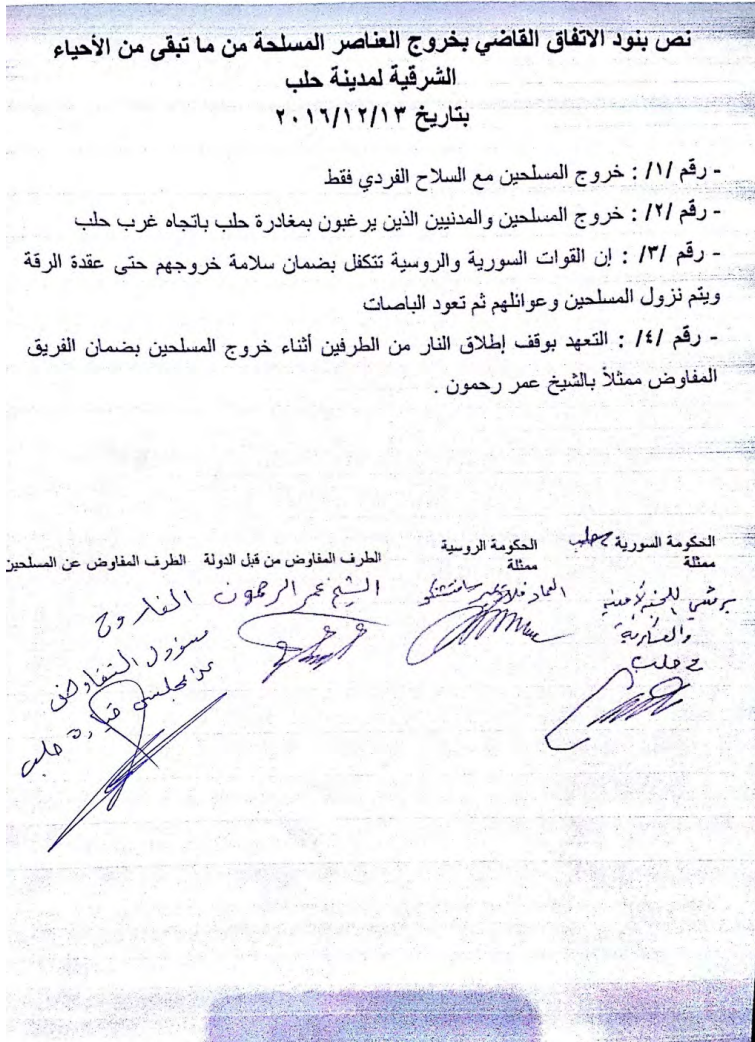 نص بنود الاتفاق القاضي بخروج العناصر المسلحة من ما تبقى من الأحياء
الشرقية لمدينة حلب
بتاريخ ٢٠١٦/١٢/١٣
- رقم /١/ : خروج المسلحين مع السلاح الفردي فقط
- رقم /٢/ : خروج المسلحين والمدنيين الذين يرغبون بمغادرة حلب باتجاه غرب حلب
- رقم /٣/ : إن القوات السورية والروسية تتكفل بضمان سلامة خروجهم حتى عقدة الرقة
ويتم نزول المسلحين وعوائلهم ثم تعود الباصات
- رقم /٤/ : التعهد بوقف إطلاق النار من الطرفين أثناء خروج المسلحين بضمان الفريق
المفاوض ممثلاً بالشيخ عمر رحمون .
الحكومة السورية حلب
ممثلة
برئيس اللجنة الأمنية
والعسكرية
حلب
الحكومة الروسية
ممثلة
العماد
الطرف المفاوض من قبل الدولة
الشيخ عمر الرحمون
الطرف المفاوض عن المسلحين
الفاروق
مسؤول التفاوض
قيادة حلب